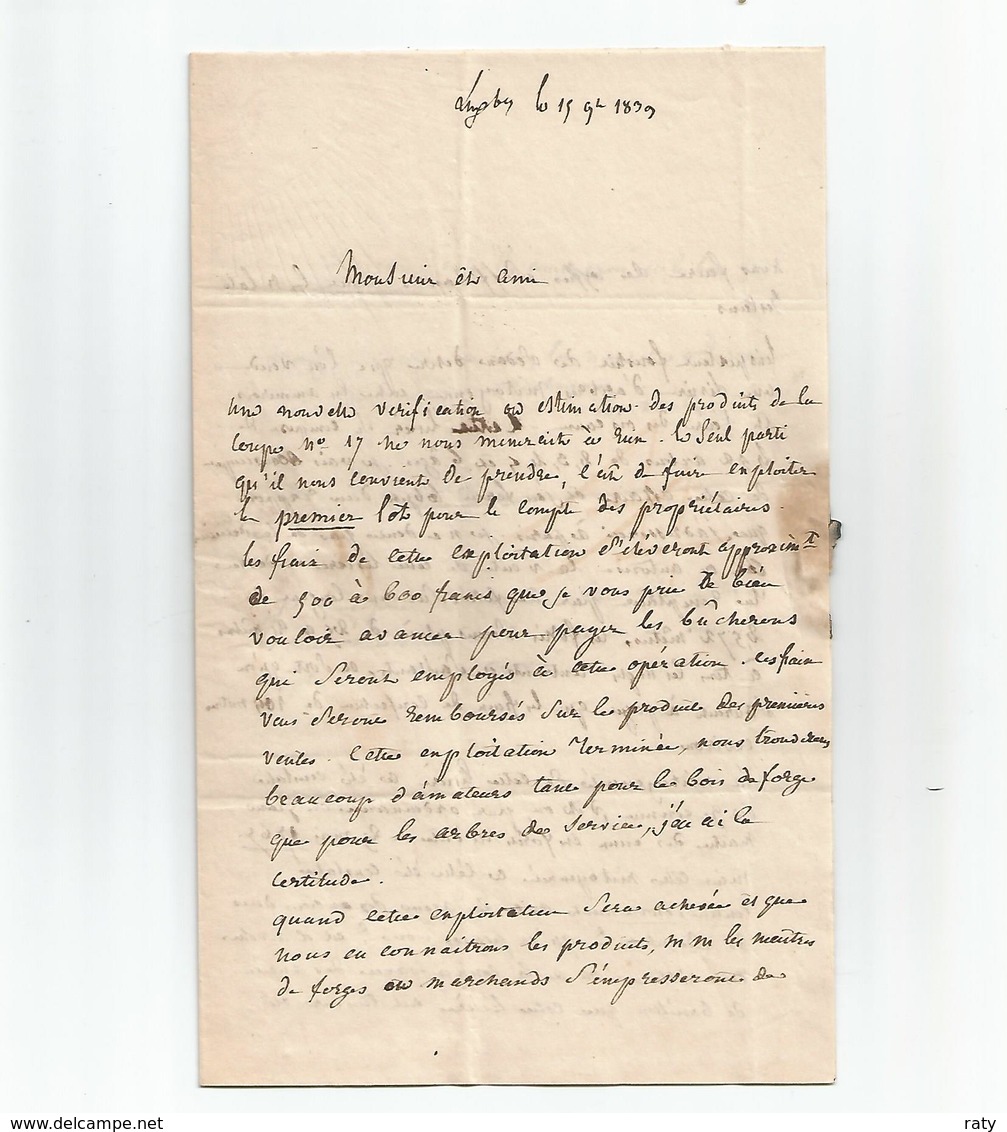 le 15 9bre 1839
Monsieur et ami
une nouvelle verification ou estimation des produits de la
coupe n° 17 ne nous menerait à rien. le seul parti
qu'il nous convient de prendre, c'est de faire exploiter
le premier lot pour le compte des propriétaires.
les frais de cette exploitation s'élèveront approximt
de 500 à 600 francs que je vous prie de bien
vouloir avancer pour payer les bûcherons
qui seront employés à cette opération. ces frais
vous seront remboursés sur le produit des premières
ventes. cette exploitation terminée, nous trouverons
beaucoup d'amateurs tant pour le bois de forge
que pour les arbres de service, j'en ai la
certitude.
quand cette exploitation sera achevée et que
nous en connaitrons les produits, m m les maitres
de forges ou marchands s'empresseront de
raty